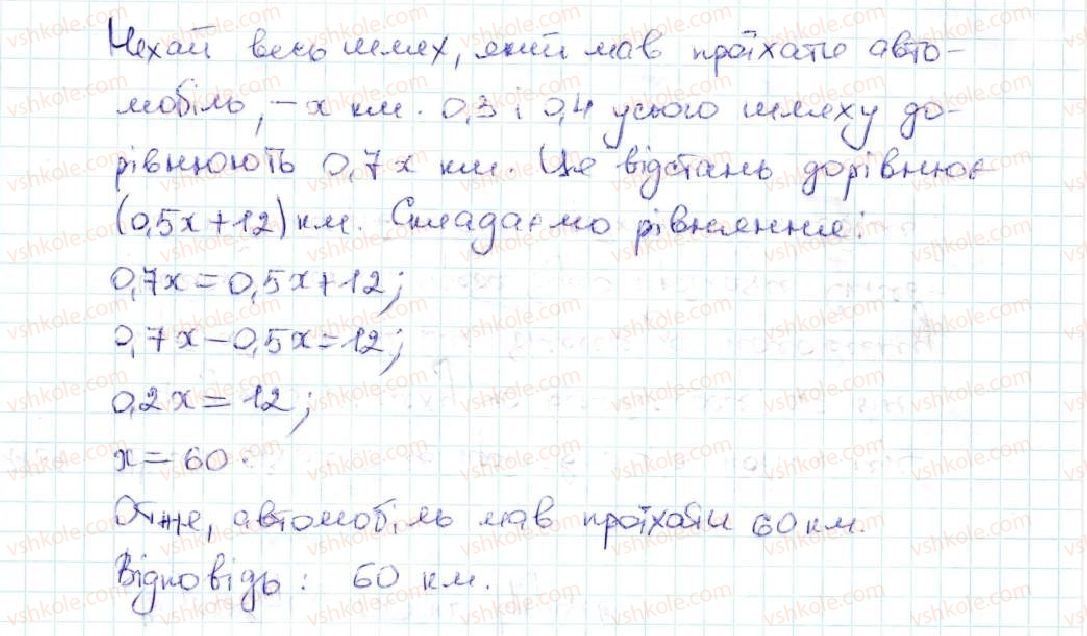 Нехай весь шлях, який мав проїхати авто-
мобіль, – x км. 0,3 і 0,4 усього шляху до-
рівнюють 0,7x км. Ця відстань дорівнює
(0,5x+12) км. Складаємо рівняння:
0,7x=0,5x+12;
0,7x-0,5x=12;
0,2x=12;
x=60.
Отже, автомобіль мав проїхати 60 км.
Відповідь: 60 км.
vshkole.com